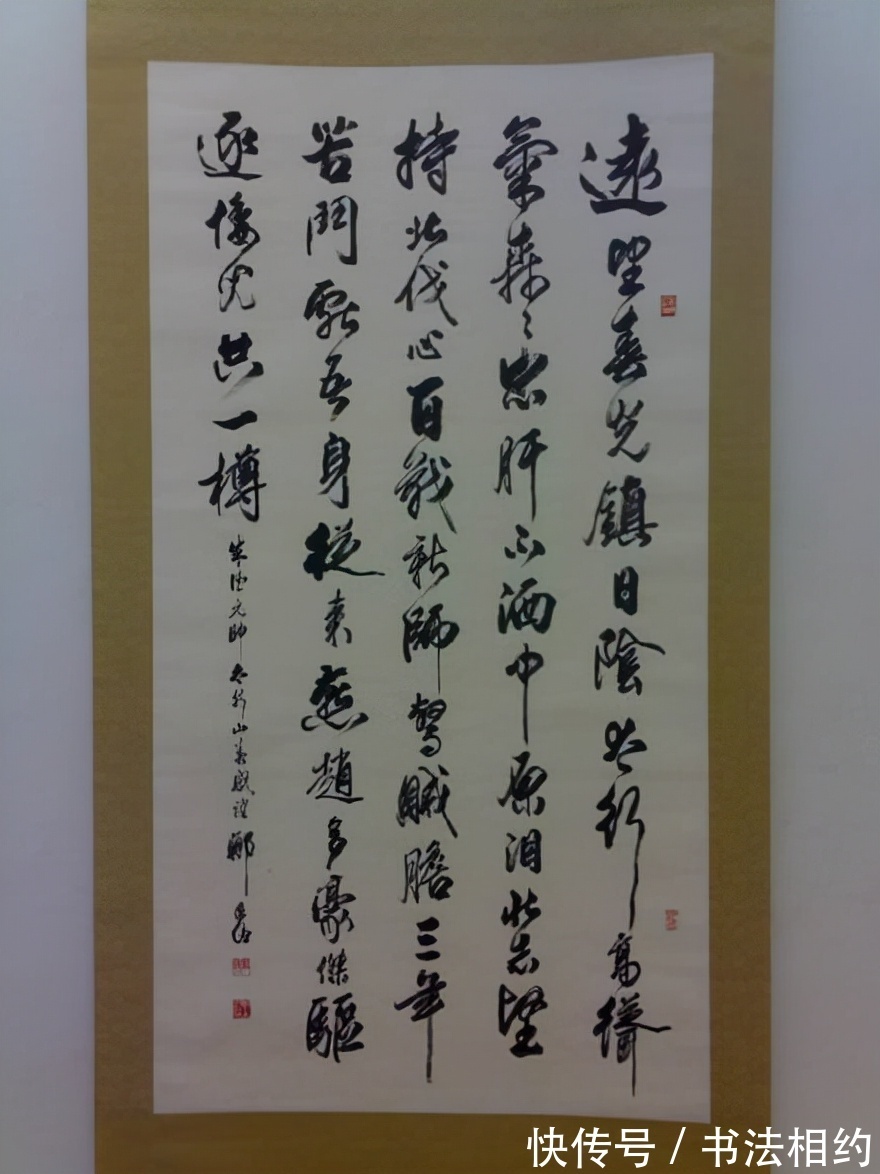 遠望春光鎮日陰太行高聳
氣森〻忠肝不洒中原泪壯志堅
持北伐心百戰新師驚賊膽三年
苦鬥獻吾身從來燕趙多豪傑驅
逐倭児共一樽
朱德元帥太行山春感詩 鄭
快传号 / 书法相约